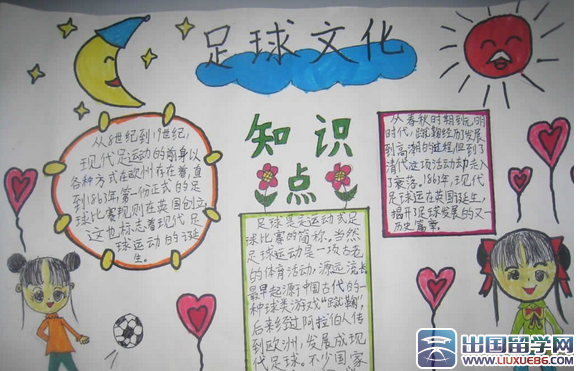 足球文化
知识
点
从8世纪到19世纪,
现代足运动的前身以
各种方式在欧州存在着,直
到1863年第一份正式的足
球比赛规则在英国创立,
这也标志着现代足
球运动的诞
生。
足球是
球比赛的简称。当然
足球运动是一项古老
的体育活动,源远流长
最早起源中国古代的一
种球类游戏"蹴鞠",
后来经过阿拉伯人传
到欧洲,发展成现
代足球。不少国家
从春秋时期到
时代,蹴鞠经历发展
到高潮的进程但到了
清代这项活动却走入
了衰落。1863年,现代
足球运在英国诞生,
揭开足球发展的又一
历史篇章。
出国留学网
WWW.LIUXUE86.COM